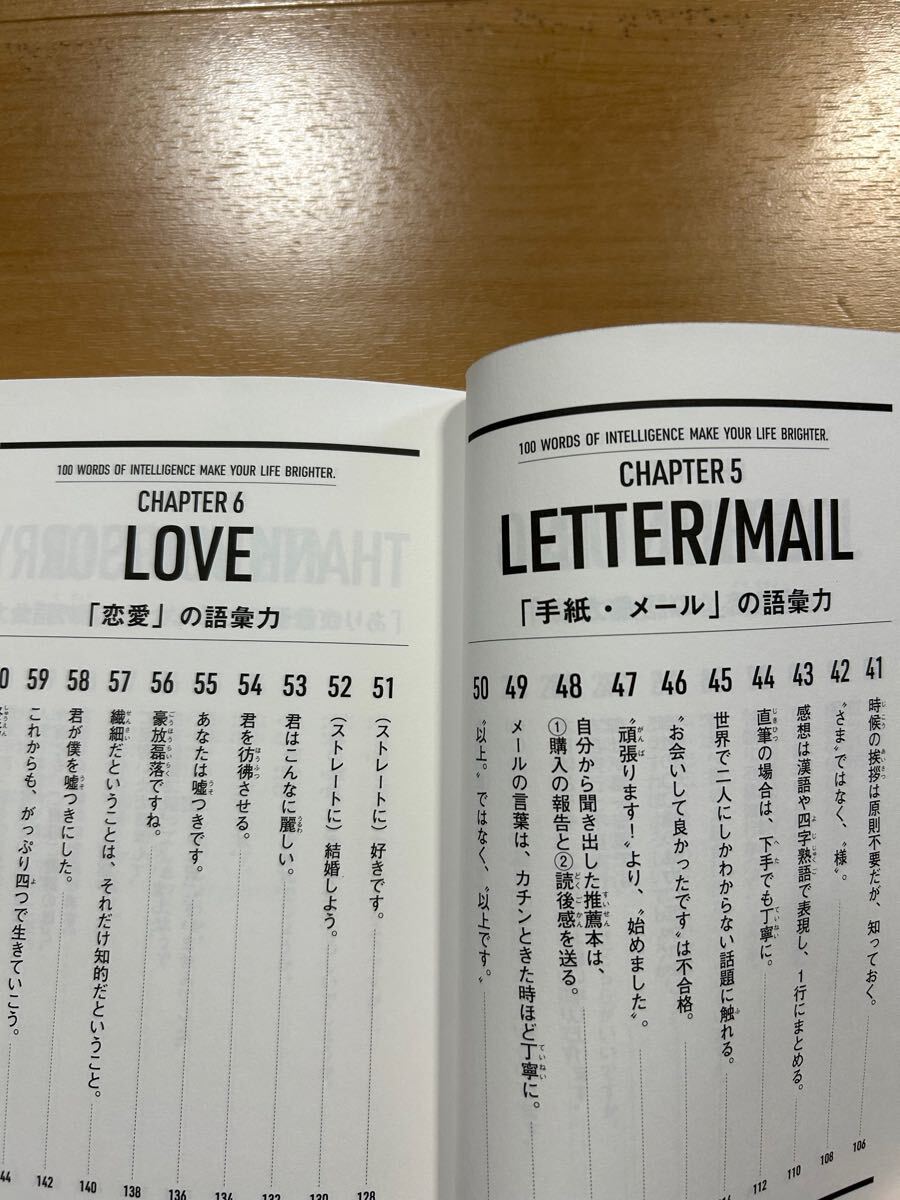 100 WORDS OF INTELLIGENCE MAKE YOUR LIFE BRIGHTER.
CHAPTER 5
LETTER/MAIL
「手紙・メール」の語彙力
41 時候の挨拶は原則不要だが、知っておく。 106
42 〝さま〟ではなく、〝様〟。 108
43 感想は漢語や四字熟語で表現し、1行にまとめる。 110
44 直筆の場合は、下手でも丁寧に。 112
45 世界で二人にしかわからない話題に触れる。
46 〝お会いして良かったです〟は不合格。
47 〝頑張ります!〟より、〝始めました〟。
48 自分から聞き出した推薦本は、
①購入の報告と②読後感を送る。
49 メールの言葉は、カチンときた時ほど丁寧に。
50 〝以上。〟ではなく、〝以上です。〟
100 WORDS OF INTELLIGENCE MAKE YOUR LIFE BRIGHTER.
CHAPTER 6
LOVE
「恋愛」の語彙力
51 (ストレートに)好きです。 128
52 (ストレートに)結婚しよう。 130
53 君はこんなに麗しい。 132
54 君を彷彿させる。 134
55 あなたは嘘つきです。 136
56 豪放磊落ですね。 136
57 繊細だということは、それだけ知的だということ。 138
58 君が僕を嘘つきにした。 140
59 これからも、がっぷり四つで生きていこう。 142